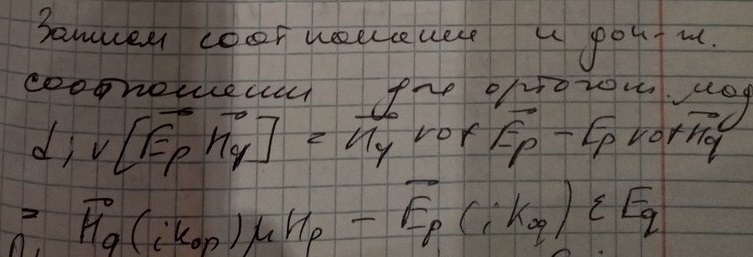 Запишем соотношения и док-м.
соотношения для ортогон. мод
div[E⃗p H⃗q] = H⃗q rot E⃗p − Ep rot H⃗q
= H⃗q (ik₀p) μ Hp − E⃗p (ik₀q) ε Eq